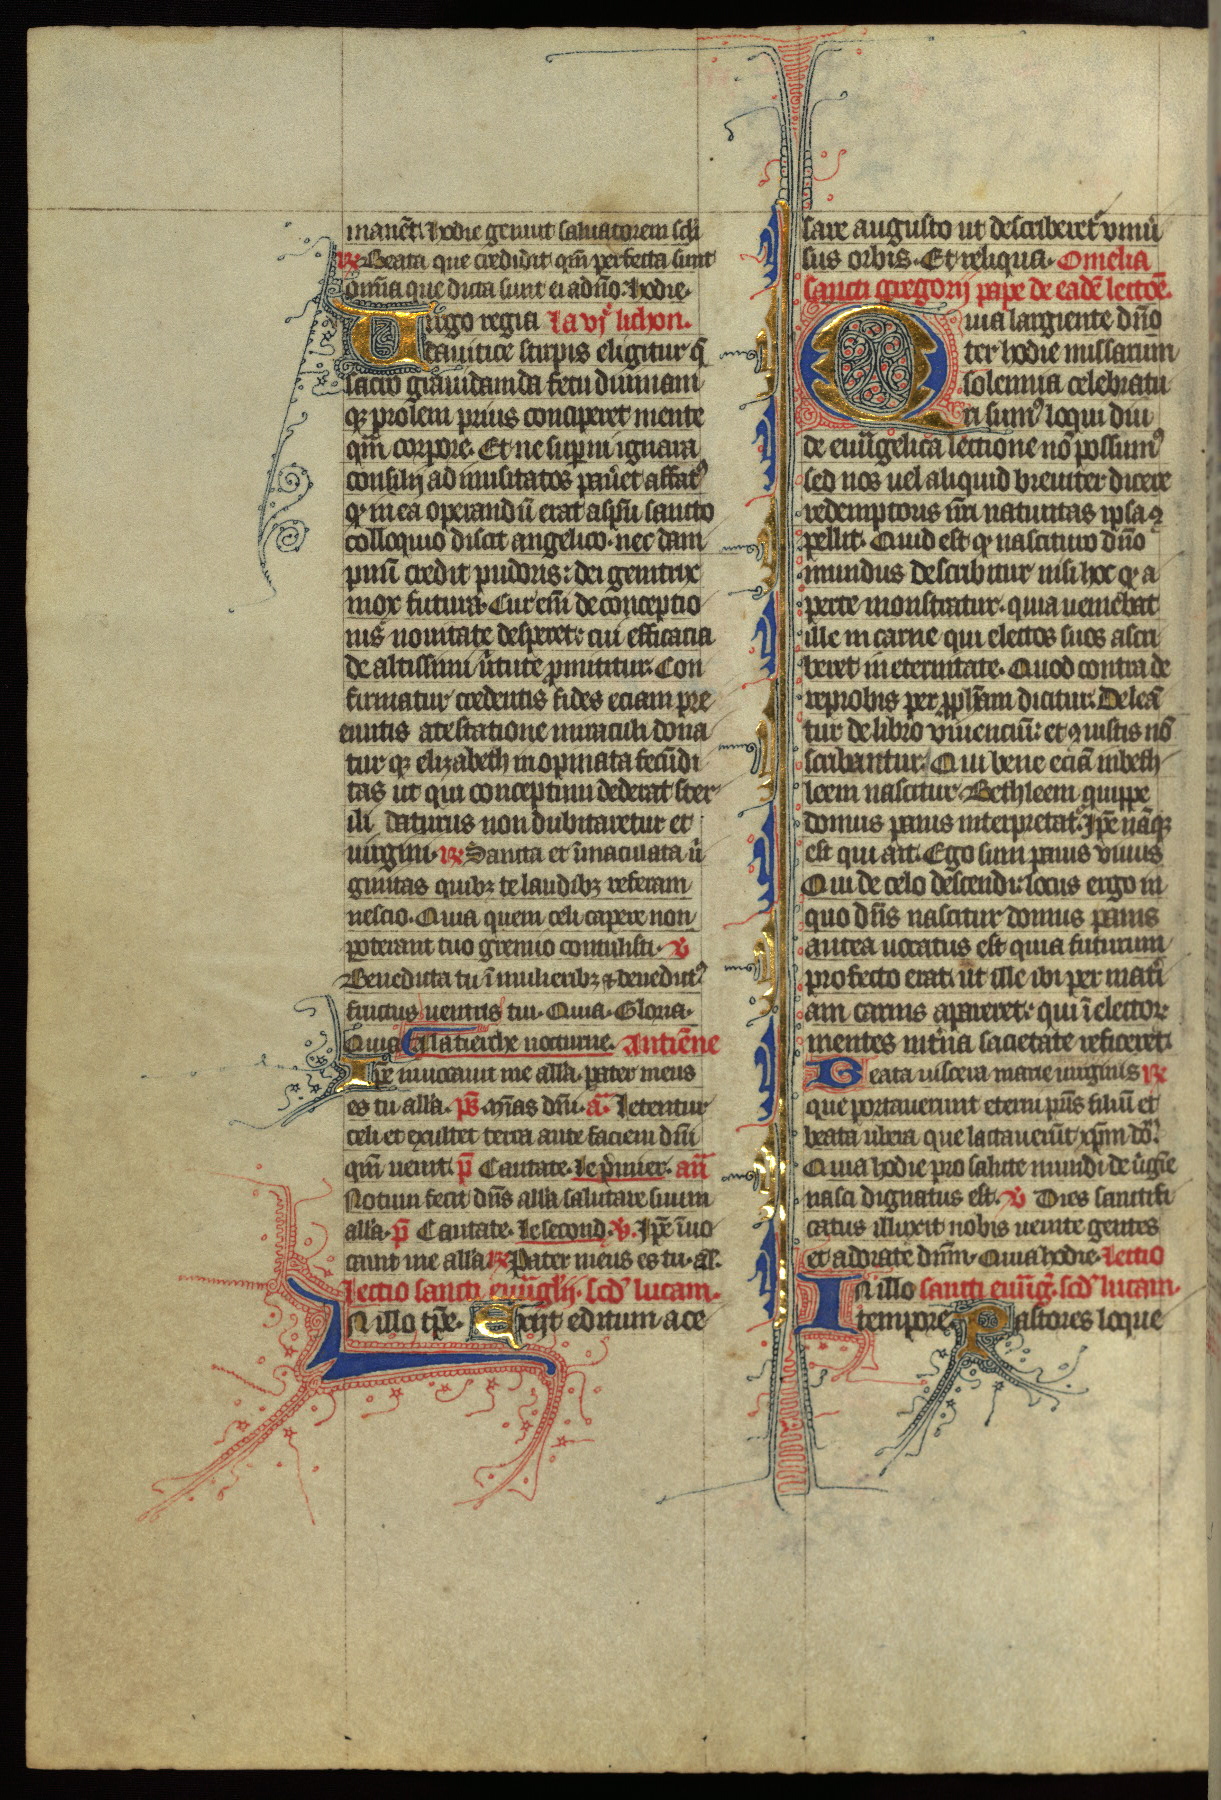 manet. hodie genuit saluatorem scli
℟ Beata que credidit qm̄ perfecta sunt
omīa que dicta sunt ei a dn̄o. hodie.
Uirgo regia La vjᵉ lichon.
dauitice stirpis eligitur q̄
sacro grauidanda fetu diuinam
qꝫ prolem prius conciperet mente
qm̄ corpore. Et ne superni ignara
consilij ad inusitatos pau̅et affatꝰ
qꝫ in ea operandū erat a spū sancto
colloquio discit angelico. nec dam
pnū credit pudoris: dei genitrix
mox futura. Cur em̄ de conceptio
nis nouitate desperet: cui efficacia
de altissimi ūtute ꝓmittitur. Con
firmatur credentis fides eciam pre
euntis atestatione miraculi dona
tur qꝫ elizabeth inopinata fecūdi
tas ut qui conceptum dederat ster
ili daturus non dubitaretur et
uirgini. ℟ Sancta et īmaculata ū
ginitas quibꝫ te laudibꝫ referam
nescio. Quia quem celi capere non
poterant tuo gremio contulisti. ℣
Benedicta tu ī mulieribꝫ ⁊ benedictꝰ
fructus uentris tui. Quia. Gloria.
Quia A la tierche nocturne. Antiēne
Ipē inuocauit me alla. pater meus
es tu alla. ps̄ Mīas dn̄i. a̅. Letentur
celi et exultet terra ante faciem dn̄i
qm̄ uenit. p̄ Cantate. Le p̄mier. an̄
Notum fecit dn̄s alla salutare suum
alla. p̄ Cantate. Le second. ℣. Ipē īuo
cauit me alla. ℟ Pater meus es tu. al.
Lectio sancti euu̅glij. scd̄ lucam.
In illo tp̄e. Exijt edictum a ce
sare augusto ut describeret᷑ vniū
sus orbis. Et reliqua. Omelia
sancti gregorij pape de eadē lectoē.
Quia largiente dn̄o
ter hodie missarum
solemnia celebratu
ri sumꝰ loqui diu
de euu̅gelica lectione nō possumꝰ
sed nos uel aliquid breuiter dicere
redemptoris nr̄i natiuitas ipsa ꝯ
pellit. Quid est qꝫ nascituro dn̄o
mundus describitur nisi hoc qꝫ a
perte monstratur. quia ueniebat
ille in carne qui electos suos ascri
beret in eternitate. Quod contra de
reprobis per ꝓphām dicitur. Deleā
tur de libro viuenciū: et ꝯ iustis nō
scribantur. Qui bene eciā in beth
leem nascitur. Bethleem quippe
domus panis interpretat᷑. Ipē nāqꝫ
est qui ait. Ego sum panis viuus
Qui de celo descendi: locus ergo in
quo dn̄s nascitur domus panis
antea uocatus est quia futurum
profecto erat. ut ille ibi per mat̄i
am carnis apareret: qui ī elector
mentes int̄na sacietate reficeret.
Beata uiscera marie uirginis ℟
que portauerunt eterni pr̄is filiū et
beata ubera que lactauerūt xpm̄ dō.
Quia hodie pro salute mundi de ūgīe
nasci dignatus est. ℣ Dies sanctifi
catus illuxit nobis uenite gentes
et adorate dnm̄. Quia hodie. Lectio
In illo sancti euu̅g̅. scd̄ lucam.
tempore. Pastores loque